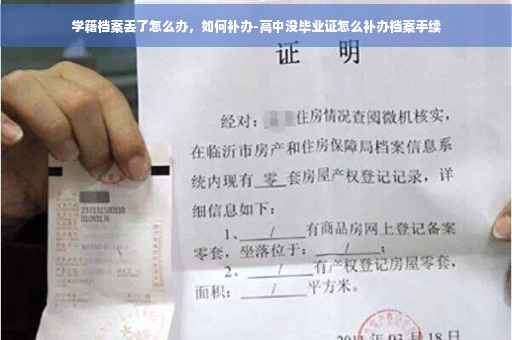 学藉档案丢了怎么办，如何补办-高中没毕业证怎么补办档案手续
证 明
经对：住房情况查阅微机核实，
在临沂市房产和住房保障局档案信息系
统内现有 零 套房屋产权登记记录，详
细信息如下：
1、 / 有商品房网上登记备案
零套，坐落位于： / ；
2、 / 有产权登记房屋零套，
面积： / 平方米。
03月18日